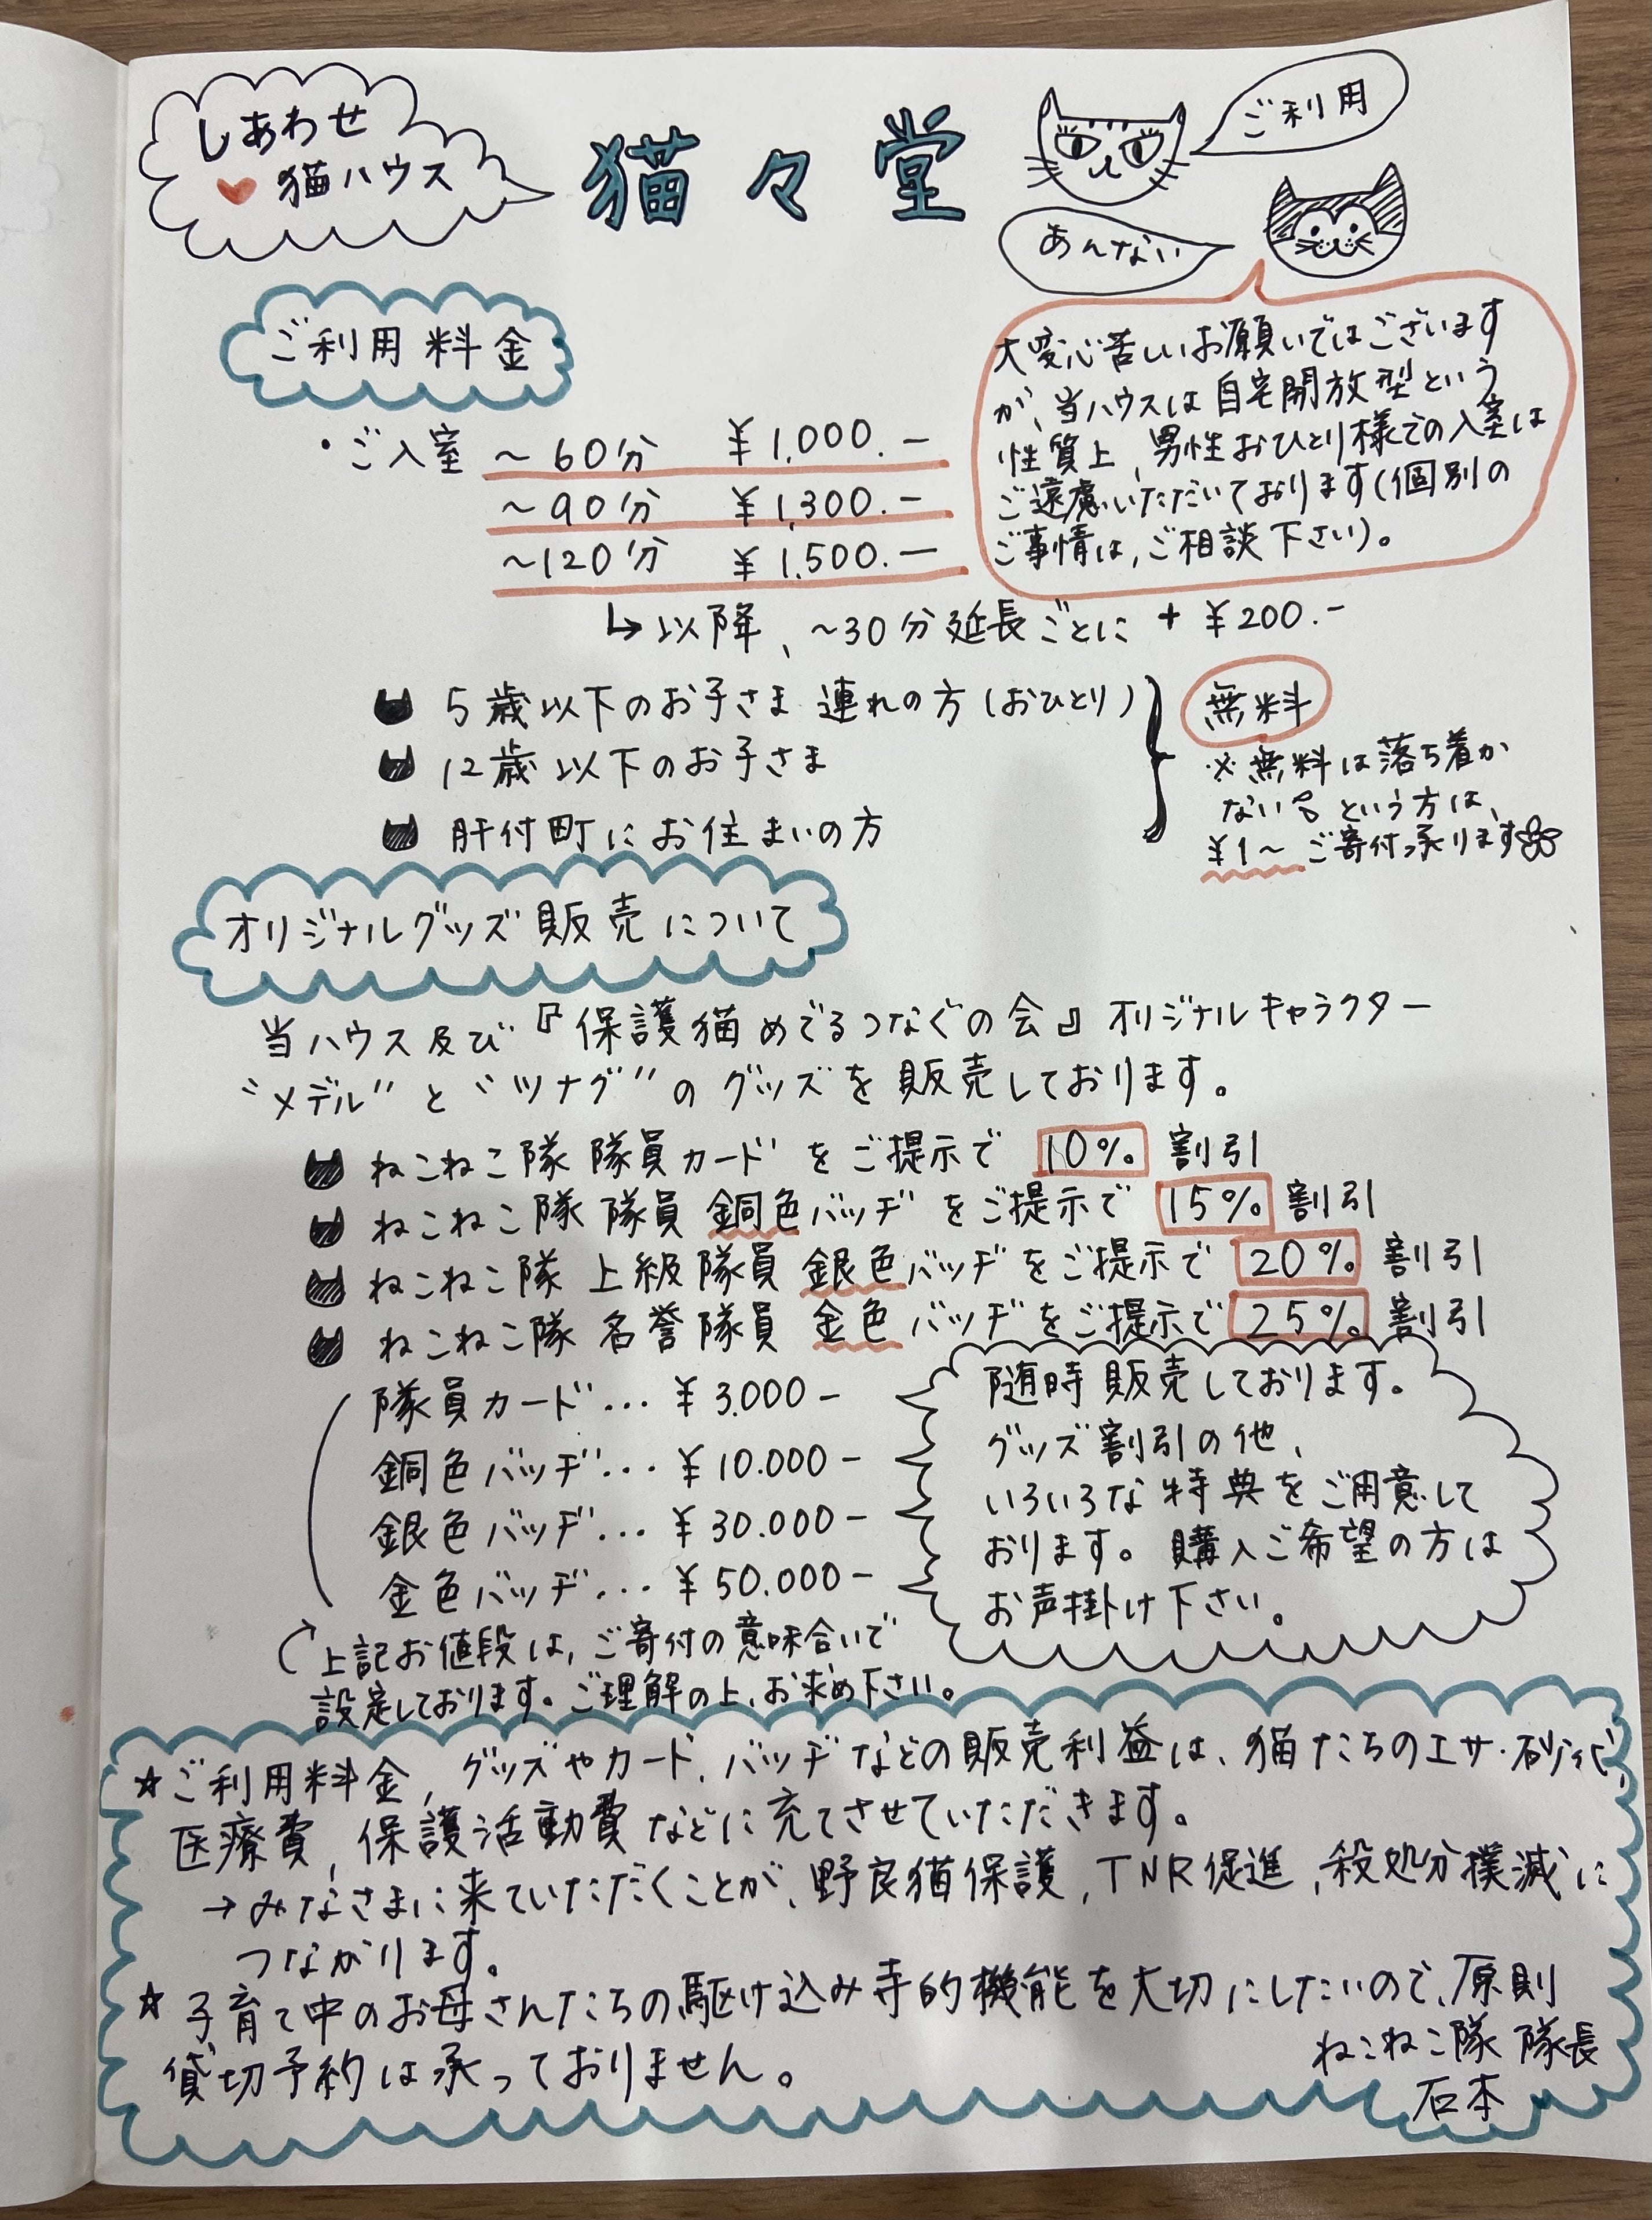 しあわせ
猫ハウス
猫々堂
ご利用
あんない
ご利用料金
大変心苦しいお願いではございます
が、当ハウスは自宅開放型という
性質上、男性おひとり様での入室は
ご遠慮いただいております(個別の
ご事情は、ご相談下さい)。
・ご入室 ~60分 ¥1,000.-
~90分 ¥1,300.-
~120分 ¥1,500.-
↳以降、~30分延長ごとに + ¥200.-
5歳以下のお子さま連れの方(おひとり)
12歳以下のお子さま
肝付町にお住まいの方
無料
※無料は落ち着か
ない という方は、
¥1~ご寄付承ります
オリジナルグッズ販売について
当ハウス及び『保護猫めでるつなぐの会』オリジナルキャラクター
"メデル"と"ツナグ"のグッズを販売しております。
ねこねこ隊 隊員カードをご提示で 10% 割引
ねこねこ隊 隊員 銅色バッヂをご提示で 15% 割引
ねこねこ隊 上級隊員 銀色バッヂをご提示で 20% 割引
ねこねこ隊 名誉隊員 金色バッヂをご提示で 25% 割引
隊員カード… ¥3.000-
銅色バッヂ… ¥10.000-
銀色バッヂ… ¥30.000-
金色バッヂ… ¥50.000-
上記お値段は、ご寄付の意味合いで
設定しております。ご理解の上、お求め下さい。
随時販売しております。
グッズ割引の他、
いろいろな特典をご用意して
おります。購入ご希望の方は
お声掛け下さい。
☆ご利用料金、グッズやカード、バッヂなどの販売利益は、猫たちのエサ・砂代、
医療費、保護活動費などに充てさせていただきます。
→みなさまに来ていただくことが、野良猫保護、TNR促進、殺処分撲滅に
つながります。
☆子育て中のお母さんたちの駆け込み寺的機能を大切にしたいので、原則
貸切予約は承っておりません。
ねこねこ隊 隊長
石本